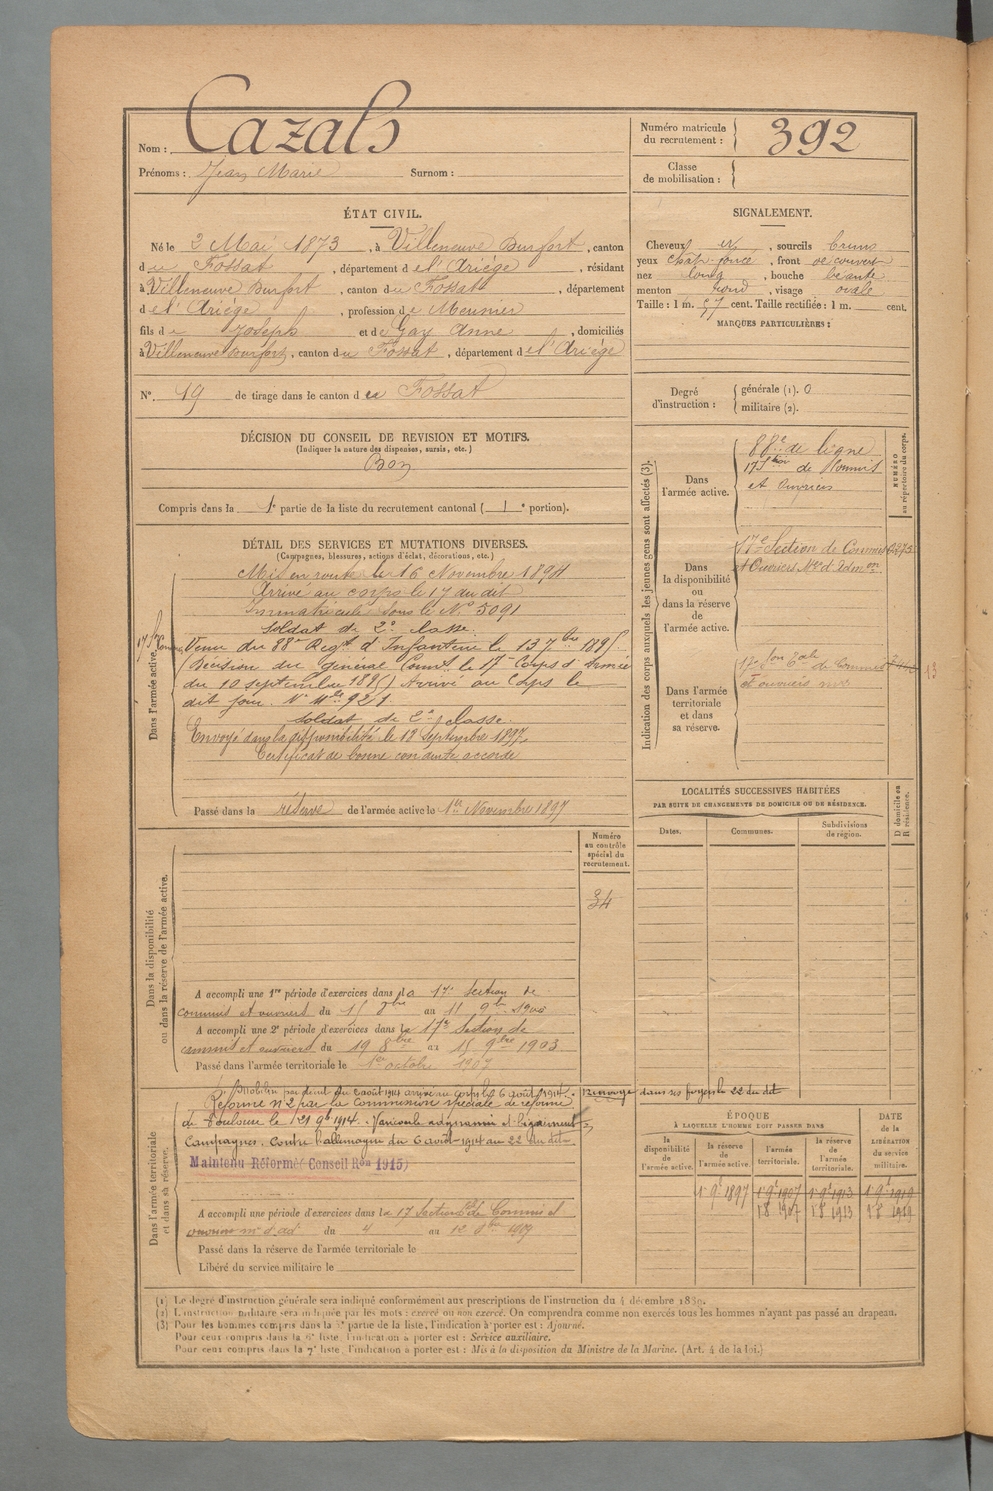 Nom : Cazals
Prénoms : Jean Marie Surnom :
Numéro matricule du recrutement : 392
Classe de mobilisation :
ÉTAT CIVIL.
Né le 2 Mai 1873, à Villeneuve Durfort, canton
du Fossat, département de l'Ariège, résidant
à Villeneuve Durfort, canton du Fossat, département
de l'Ariège, profession de Meunier
fils de Joseph et de Gay Anne, domiciliés
à Villeneuve Durfort, canton du Fossat, département de l'Ariège
N°. 19 de tirage dans le canton de Fossat
SIGNALEMENT.
Cheveux , sourcils bruns
yeux chat. foncé, front découvert
nez long, bouche béante
menton rond, visage ovale
Taille : 1 m. 57 cent. Taille rectifiée : 1 m. cent.
MARQUES PARTICULIÈRES :
Degré d'instruction : générale (1). 0
militaire (2).
DÉCISION DU CONSEIL DE REVISION ET MOTIFS.
(Indiquer la nature des dispenses, sursis, etc.)
Bon
Compris dans la 1e partie de la liste du recrutement cantonal (1e portion).
DÉTAIL DES SERVICES ET MUTATIONS DIVERSES.
(Campagnes, blessures, actions d'éclat, décorations, etc.)
Dans l'armée active.
Mis en route le 16 Novembre 1894
Arrivé au corps le 17 du dit
Immatriculé sous le N° 5091
Soldat de 2e classe.
Venu du 88e Regt d'Infanterie le 13 7bre 1895.
Décision du général Comt le 17e Corps d'Armée
du 10 septembre 1895 Arrivé au Corps le
dit jour. N° Mle 921.
Soldat de 2e classe.
Envoyé dans la disponibilité le 19 Septembre 1897.
Certificat de bonne conduite accordé
Passé dans la réserve de l'armée active le 1er Novembre 1897
Indication des corps auxquels les jeunes gens sont affectés (3).
NUMÉRO au répertoire du corps.
Dans l'armée active.
88e de ligne
17e Son de Commis
et Ouvriers
Dans la disponibilité ou dans la réserve de l'armée active.
17e Section de Commis
et Ouvriers Mres d'Admon.
Dans l'armée territoriale et dans sa réserve.
17e Son Tale de Commis
et ouvriers mres
13
LOCALITÉS SUCCESSIVES HABITÉES
PAR SUITE DE CHANGEMENTS DE DOMICILE OU DE RÉSIDENCE.
Dates. Communes. Subdivisions de région. D domicile ou R résidence.
Dans la disponibilité ou dans la réserve de l'armée active.
Numéro au contrôle spécial du recrutement.
34
A accompli une 1re période d'exercices dans la 17e Section de
commis et ouvriers du 15 8bre au 11 9bre 1900
A accompli une 2e période d'exercices dans la 17e Section de
commis et ouvriers du 19 8bre au 15 9bre 1903
Passé dans l'armée territoriale le 1er octobre 1907
Dans l'armée territoriale et dans sa réserve.
Mobilisé par décret du 2 août 1914 arrivé au Corps le 6 août 1914. Renvoyé dans ses foyers le 22 du dit
Réformé n°2 par la Commission spéciale de réforme
de Toulouse le 21 9bre 1914.
Campagnes. Contre l'allemagne du 6 août 1914 au 22 du dit
Maintenu Réformé (Conseil Ron 1915)
A accompli une période d'exercices dans la 17 Section de Commis et
ouvriers mres d'ad du 4 au 12 1909
Passé dans la réserve de l'armée territoriale le
Libéré du service militaire le
ÉPOQUE
À LAQUELLE L'HOMME DOIT PASSER DANS
la disponibilité de l'armée active. la réserve de l'armée active. l'armée territoriale. la réserve de l'armée territoriale.
DATE de la LIBÉRATION du service militaire.
1r 9e 1897 1r 9e 1907 1r 9e 1913 1r 9e 1919
1r 8 1907 1r 8 1913 1r 8 1919
(1) Le degré d'instruction générale sera indiqué conformément aux prescriptions de l'instruction du 4 décembre 1889.
(2) L'instruction militaire sera indiquée par les mots : exercé ou non exercé. On comprendra comme non exercés tous les hommes n'ayant pas passé au drapeau.
(3) Pour les hommes compris dans la 5e partie de la liste, l'indication à porter est : Ajourné.
Pour ceux compris dans la 6e liste, l'indication à porter est : Service auxiliaire.
Pour ceux compris dans la 7e liste, l'indication à porter est : Mis à la disposition du Ministre de la Marine. (Art. 4 de la loi.)